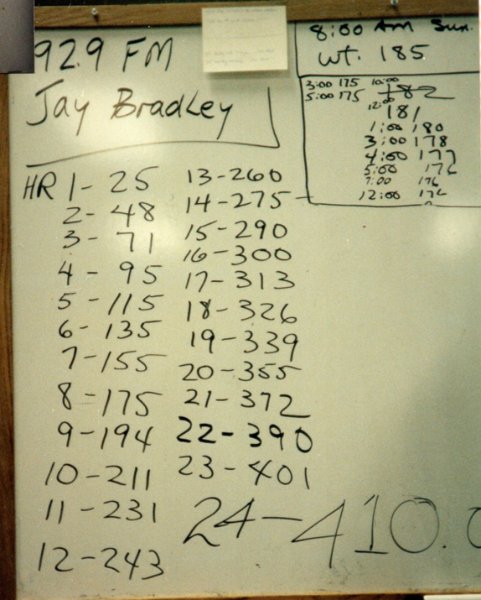 92.9 FM
Jay Bradley
8:00 AM Sun.
wt. 185
3:00 175 10:00 182
5:00 175 12:00 181
1:00 180
3:00 178
4:00 177
5:00 176
7:00 176
12:00 176
HR 1-25
2-48
3-71
4-95
5-115
6-135
7-155
8-175
9-194
10-211
11-231
12-243
13-260
14-275
15-290
16-300
17-313
18-326
19-339
20-355
21-372
22-390
23-401
24-410.0